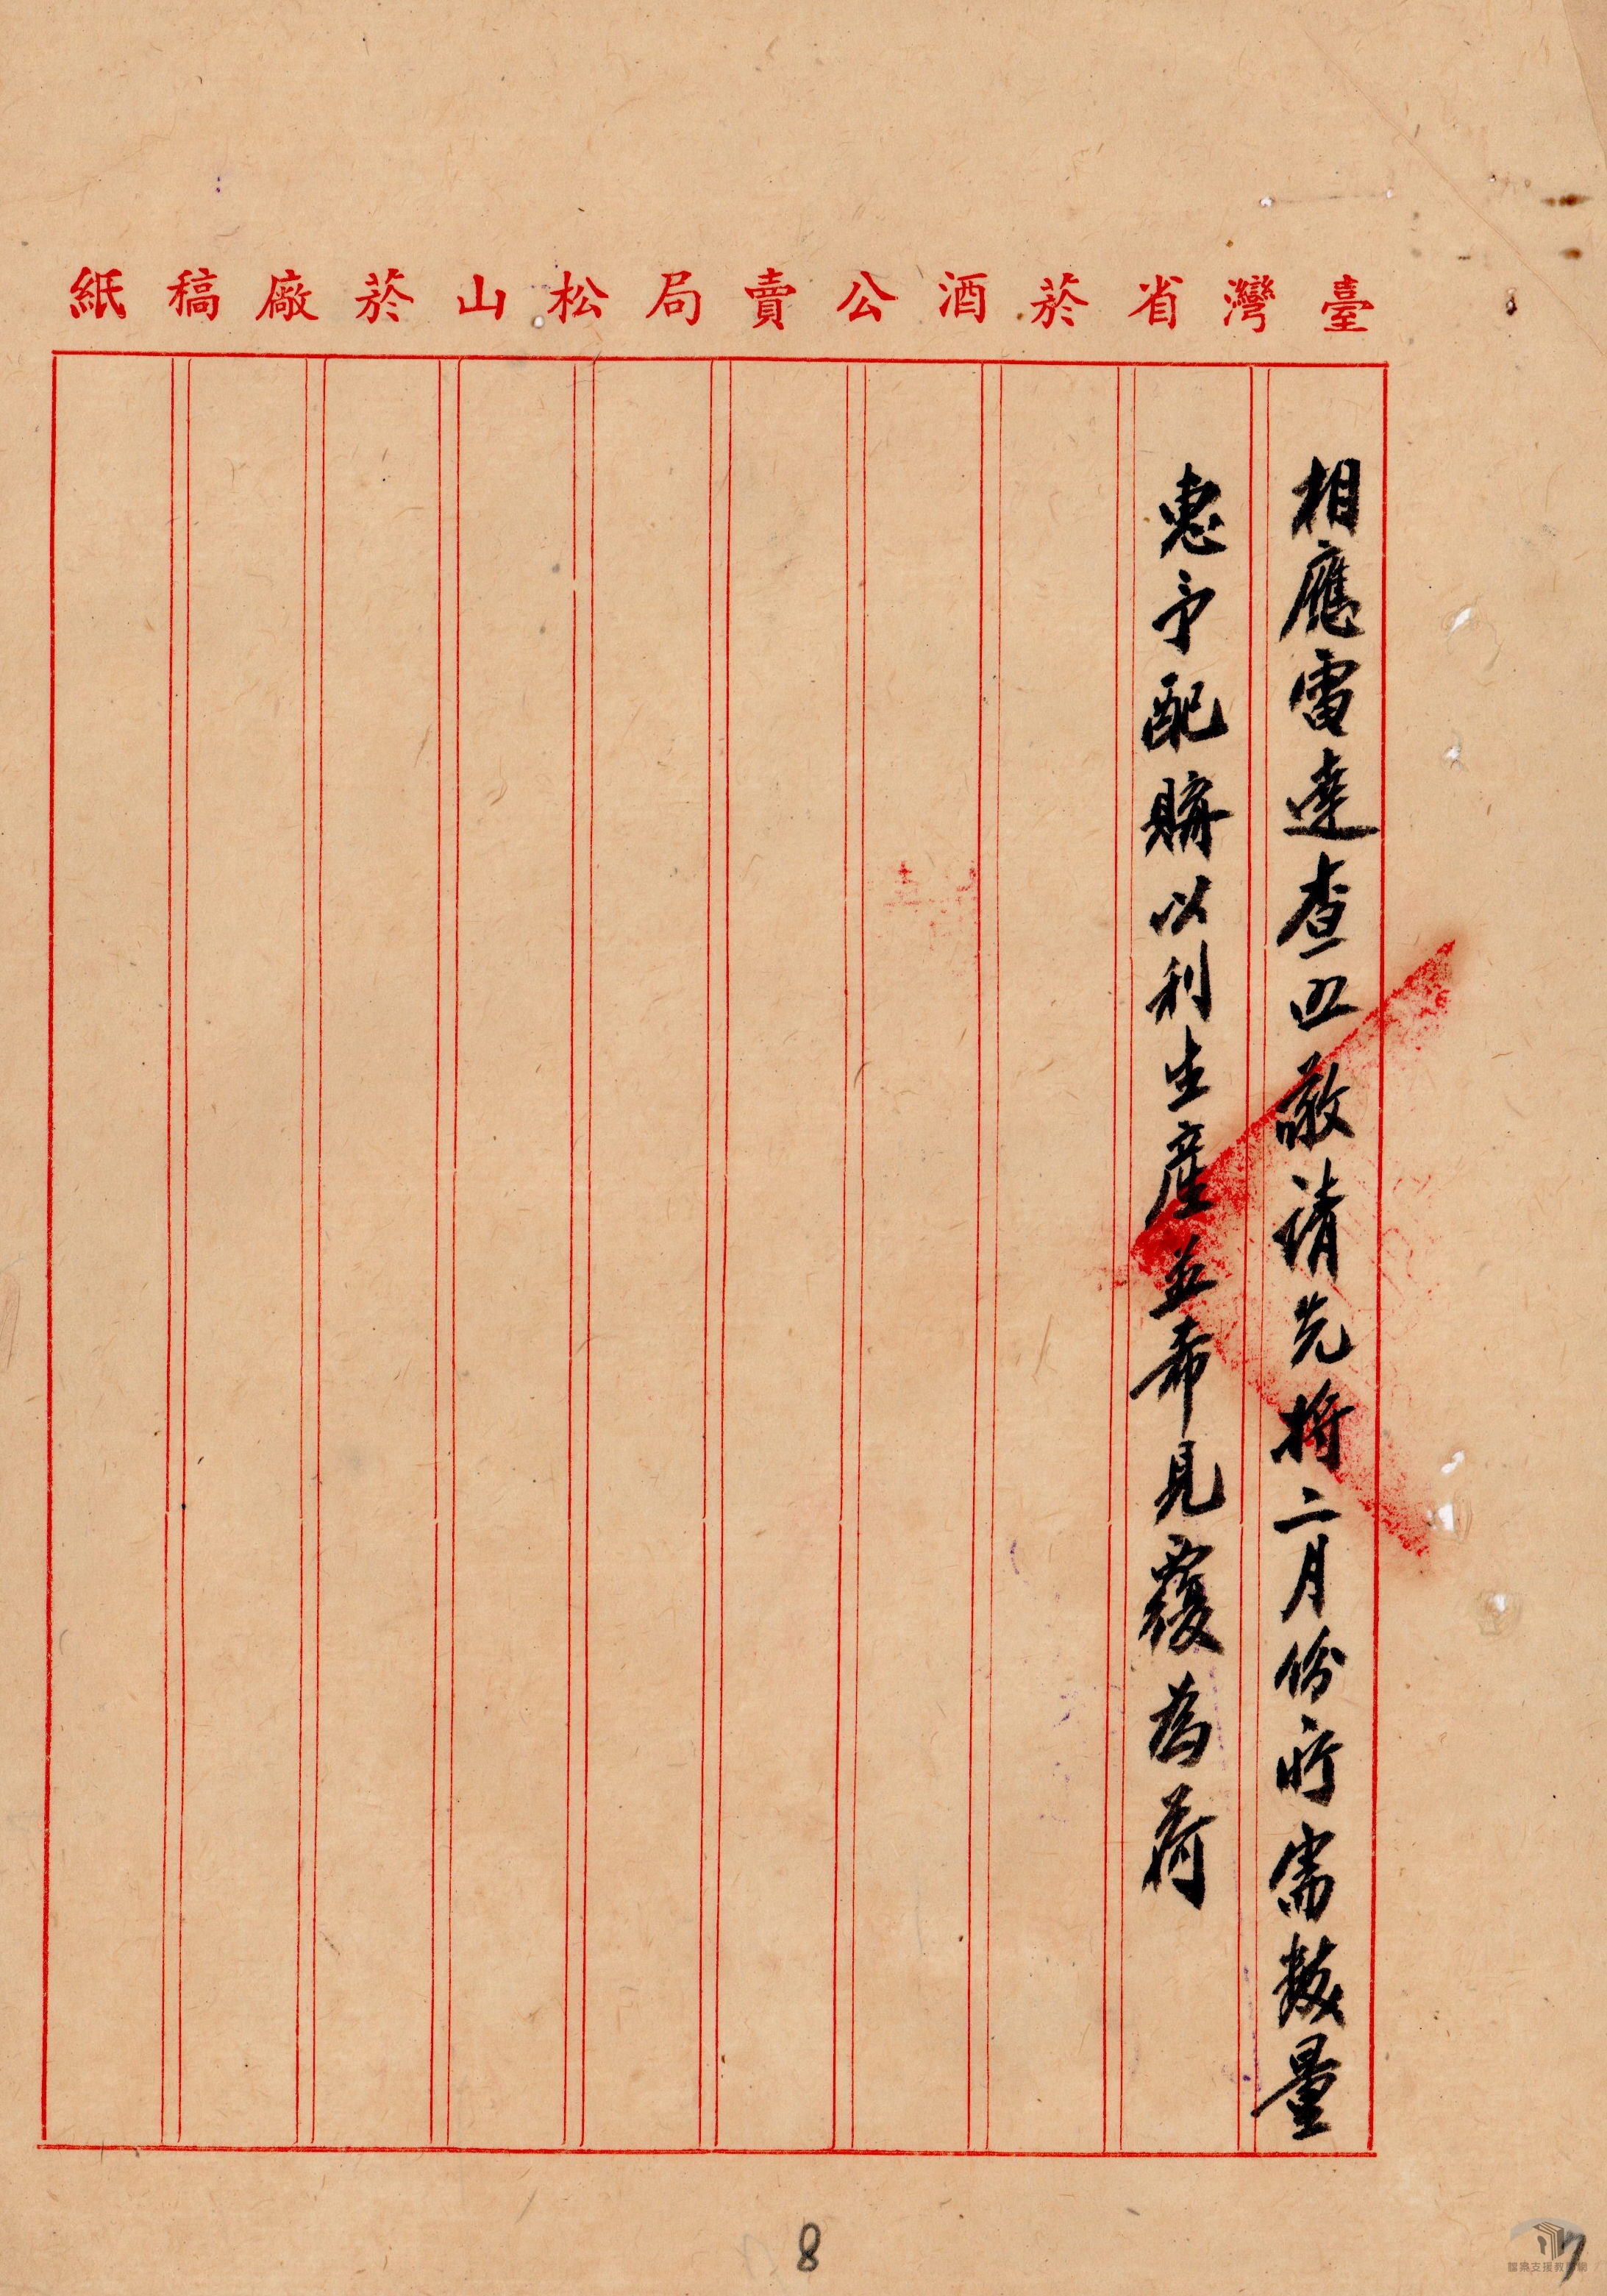 臺灣省菸酒公賣局松山菸廠稿紙
相應電達查照敬請先將二月份所需數量
惠予配購以利生產並希見覆為荷
8
7
檔案支援教學網